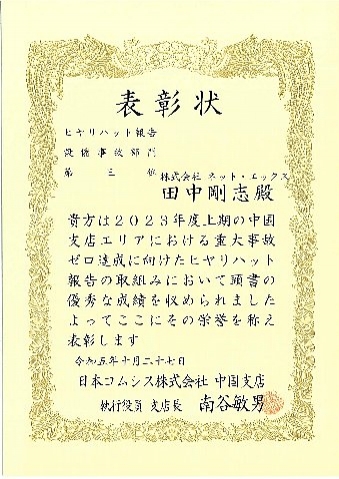 表彰状
ヒヤリハット報告
設備事故部門
第三位
株式会社 ネット・エックス
田中剛志殿
貴方は2023年度上期の中国
支店エリアにおける重大事故
ゼロ達成に向けたヒヤリハット
報告の取組みにおいて頭書の
優秀な成績を収められました
よってここにその栄誉を称え
表彰します
令和五年十月二十七日
日本コムシス株式会社 中国支店
執行役員 支店長 南谷敏男